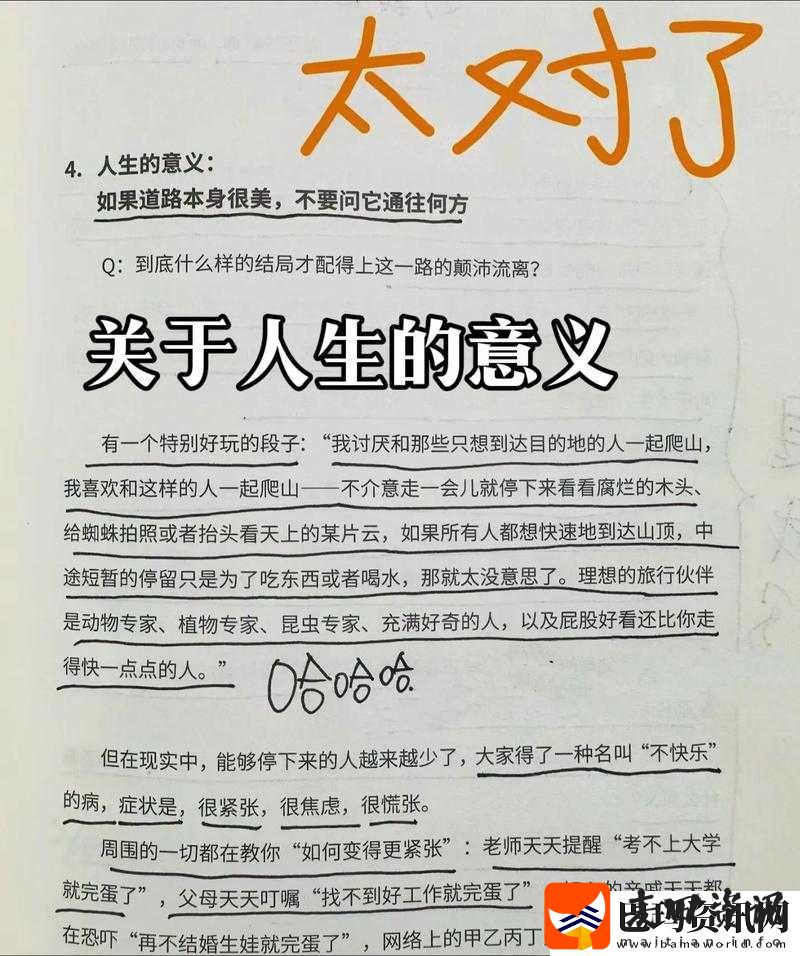 太对了
4. 人生的意义：
如果道路本身很美，不要问它通往何方
Q：到底什么样的结局才配得上这一路的颠沛流离？
关于人生的意义
有一个特别好玩的段子：“我讨厌和那些只想到达目的地的人一起爬山，
我喜欢和这样的人一起爬山——不介意走一会儿就停下来看看腐烂的木头、
给蜘蛛拍照或者抬头看天上的某片云，如果所有人都想快速地到达山顶，中
途短暂的停留只是为了吃东西或者喝水，那就太没意思了。理想的旅行伙伴
是动物专家、植物专家、昆虫专家、充满好奇的人，以及屁股好看还比你走
得快一点点的人。”
哈哈哈
但在现实中，能够停下来的人越来越少了，大家得了一种名叫“不快乐”
的病，症状是，很紧张，很焦虑，很慌张。
周围的一切都在教你“如何变得更紧张”：老师天天提醒“考不上大学
就完蛋了”，父母天天叮嘱“找不到好工作就完蛋了”
在恐吓“再不结婚生娃就完蛋了”，网络上的甲乙丙丁